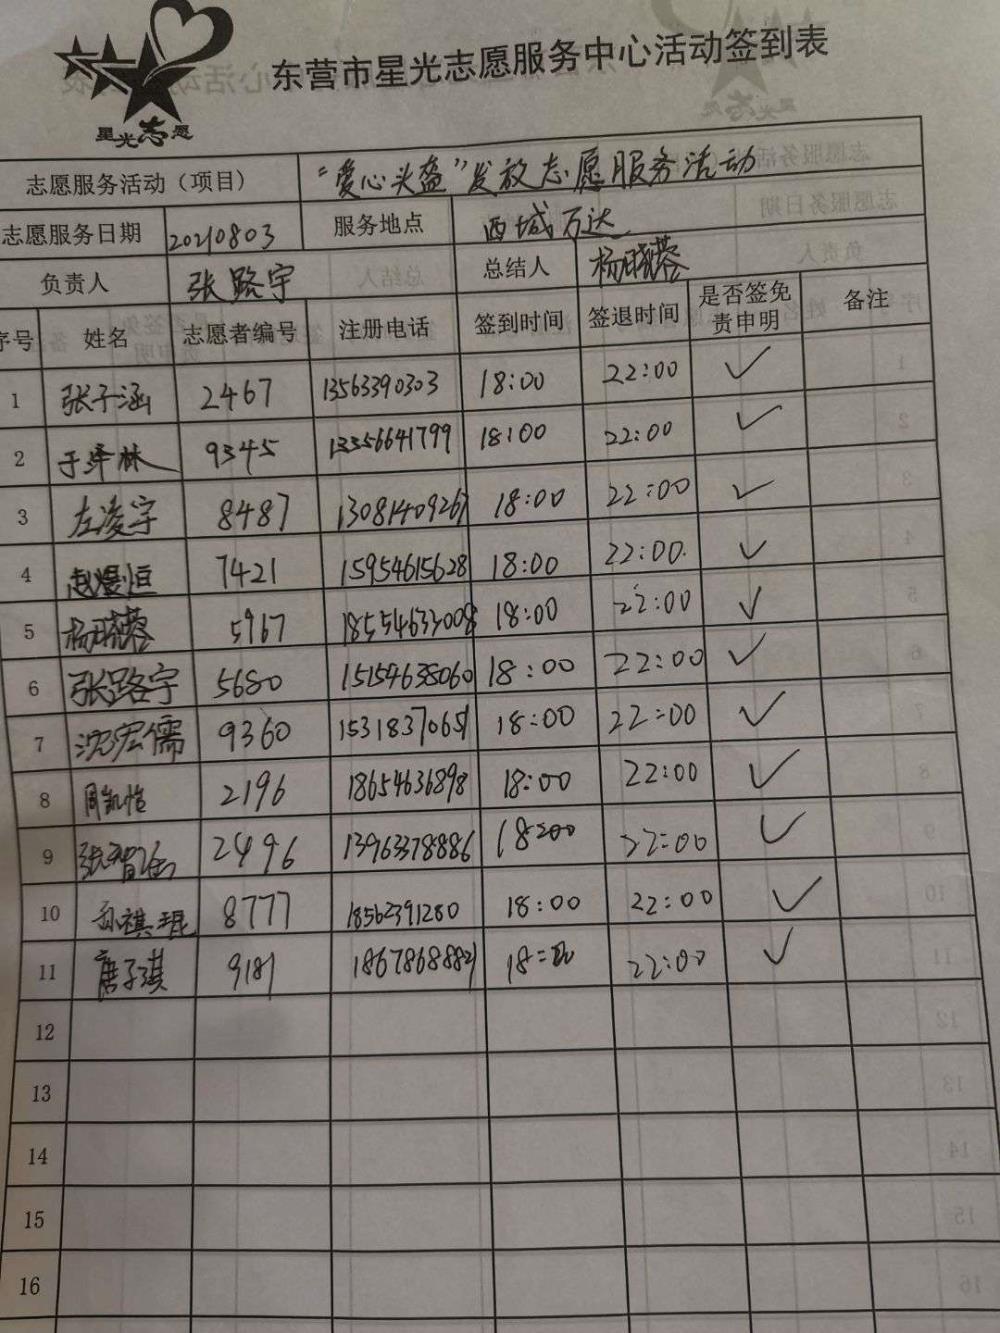 东营市星光志愿服务中心活动签到表
星光志愿
志愿服务活动（项目） “爱心头盔”发放志愿服务活动
志愿服务日期 20210803 服务地点 西城万达
负责人 张路宇 总结人 杨晓蓉
序号 姓名 志愿者编号 注册电话 签到时间 签退时间 是否签免责申明 备注
1 张子涵 2467 13563390303 18:00 22:00 ✓
2 于泽林 9345 13356641799 18:00 22:00 ✓
3 左凌宇 8487 13081409267 18:00 22:00 ✓
4 赵煜恒 7421 15954615628 18:00 22:00 ✓
5 杨晓蓉 5967 18554633008 18:00 22:00 ✓
6 张路宇 5680 15154638060 18:00 22:00 ✓
7 沈宏儒 9360 15318370651 18:00 22:00 ✓
8 周凯怡 2196 18654636898 18:00 22:00 ✓
9 2496 13963378886 18:00 22:00 ✓
10 孙祺琨 8777 18562391280 18:00 22:00 ✓
11 唐子淇 9181 18678688821 18:00 22:00 ✓
12
13
14
15
16